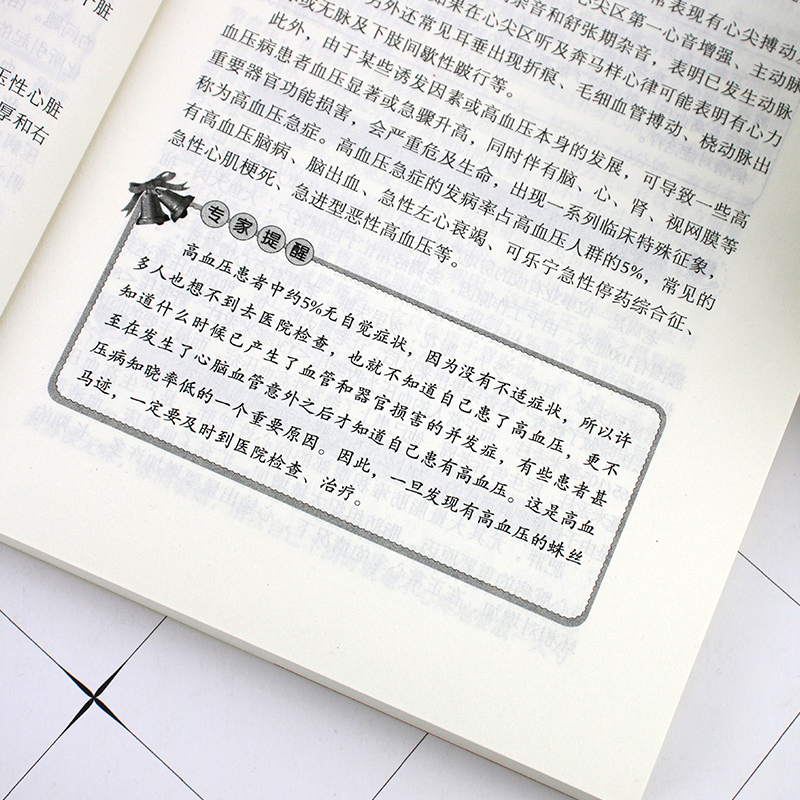 个脏
压性心脏
厚和右
常表现有心尖搏动
心尖区第一心音增强、主动脉
杂音和舒张期杂音，表明已发生动脉
如果在心尖区听及奔马样心律可能表明有心力
另外还常见耳垂出现折痕、毛细血管搏动、桡动脉出
脉或无脉及下肢间歇性跛行等。
此外，由于某些诱发因素或高血压本身的发展，可导致一些高
血压病患者血压显著或急骤升高，同时伴有脑、心、肾、视网膜等
重要器官功能损害，会严重危及生命，出现一系列临床特殊征象，
称为高血压急症。高血压急症的发病率占高血压人群的5%，常见的
有高血压脑病、脑出血、急性左心衰竭、可乐宁急性停药综合征、
急性心肌梗死、急进型恶性高血压等。
专家提醒
高血压患者中约5%无自觉症状，因为没有不适症状，所以许
多人也想不到去医院检查，也就不知道自己患了高血压，更不
知道什么时候已产生了血管和器官损害的并发症，有些患者甚
至在发生了心脑血管意外之后才知道自己患有高血压。这是高血
压病知晓率低的一个重要原因。因此，一旦发现有高血压的蛛丝
马迹，一定要及时到医院检查、治疗。